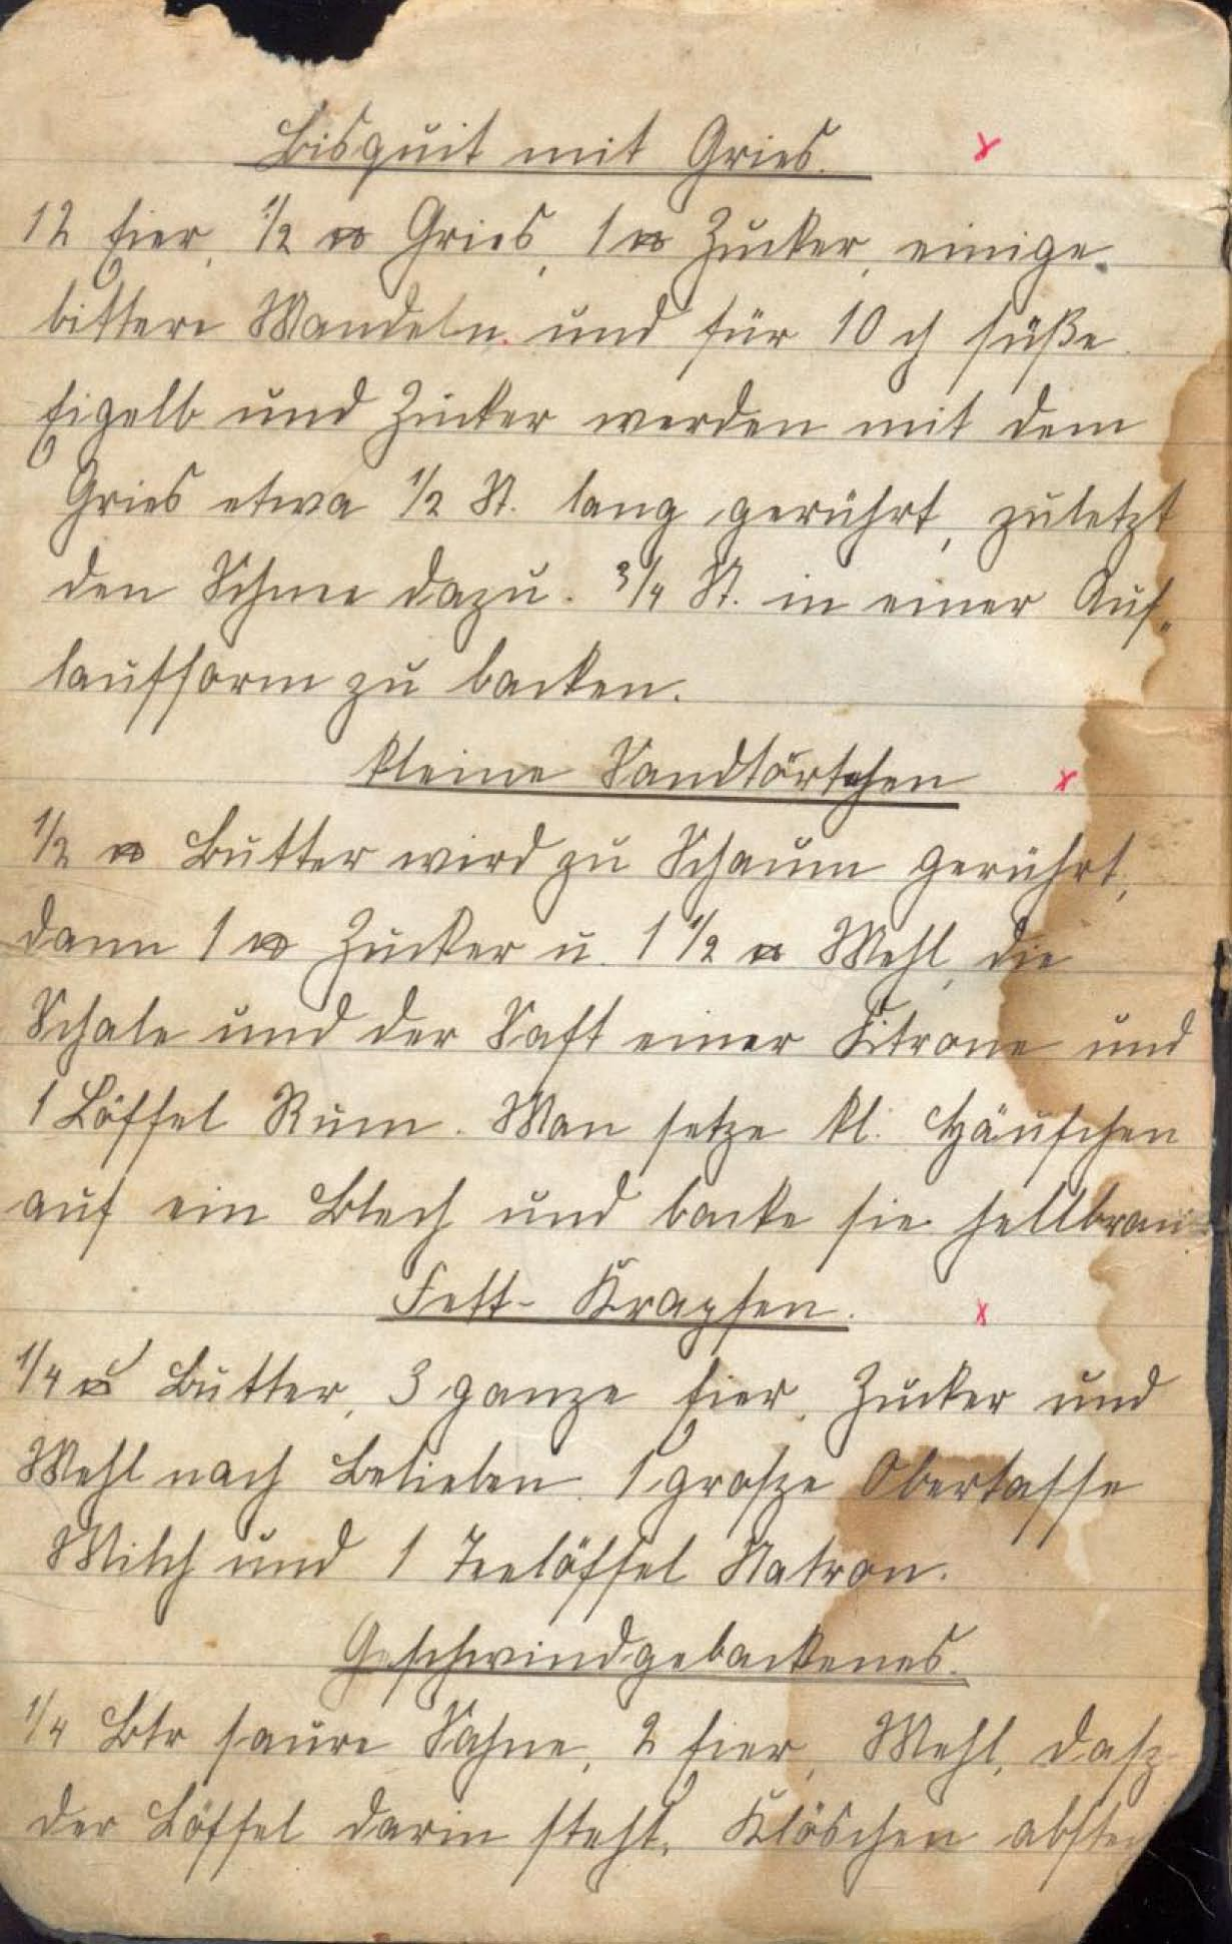 Bisquit mit Gries.
12 Eier, 1/2 ℔ Gries, 1 ℔ Zucker, einige
bittere Mandeln und für 10 ₰ süße.
Eigelb und Zucker werden mit dem
Gries etwa 1/2 St. lang gerührt, zuletzt
den Schnee dazu. 3/4 St. in einer Auf-
laufform zu backen.
Kleine Sandtörtchen
1/2 ℔ Butter wird zu Schaum gerührt,
dann 1 ℔ Zucker u. 1 1/2 ℔ Mehl, die
Schale und der Saft einer Citrone und
1 Löffel Rum. Man setze kl. Häufchen
auf ein Blech und backe sie hellbraun
Fett-Krapfen.
1/4 ℔ Butter, 3 ganze Eier, Zucker und
Mehl nach Belieben. 1 große Obertasse
Milch und 1 Teelöffel Natron.
Geschwindgebackenes.
1/4 Ltr saure Sahne, 2 Eier, Mehl, daß
der Löffel darin steht. Klöschen